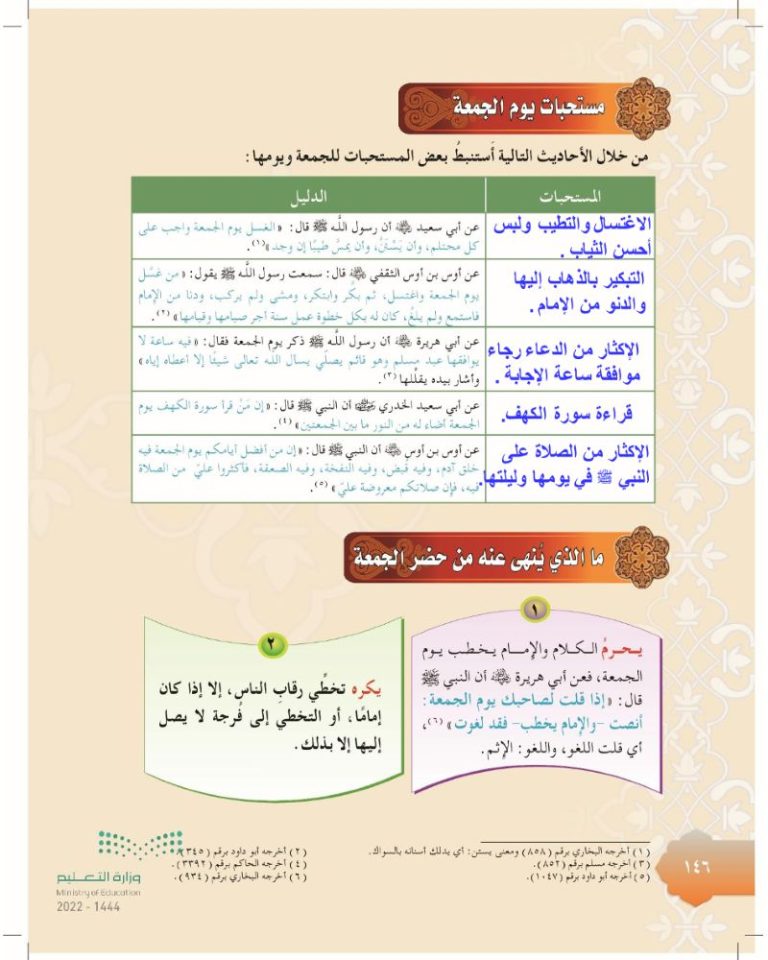 مستحبات يوم الجمعة
من خلال الأحاديث التالية أستنبطُ بعض المستحبات للجمعة ويومها :
المستحبات
الدليل
الاغتسال والتطيب ولبس
أحسن الثياب .
عن أبي سعيد رضي الله عنه أن رسول اللـه ﷺ قال: «الغسل يوم الجمعة واجب على
كل محتلم، وأن يَسْتَنَّ، وأن يمسَّ طيبًا إن وجد»(١).
التبكير بالذهاب إليها
والدنو من الإمام .
عن أوس بن أوس الثقفي رضي الله عنه قال: سمعت رسول اللـه ﷺ يقول: «من غسَّل
يوم الجمعة واغتسل، ثم بكَّر وابتكر، ومشى ولم يركب، ودنا من الإمام
فاستمع ولم يلغُ، كان له بكل خطوة عمل سنة أجر صيامها وقيامها»(٢).
الإكثار من الدعاء رجاء
موافقة ساعة الإجابة .
عن أبي هريرة رضي الله عنه أن رسول اللـه ﷺ ذكر يوم الجمعة فقال: «فيه ساعة لا
يوافقها عبد مسلم وهو قائم يصلّي يسأل اللـه تعالى شيئًا إلا أعطاه إياه»
وأشار بيده يقلّلها(٣).
قراءة سورة الكهف.
عن أبي سعيد الخدري رضي الله عنه أن النبي ﷺ قال: «إن مَنْ قرأ سورة الكهف يوم
الجمعة أضاء له من النور ما بين الجمعتين»(٤).
الإكثار من الصلاة على
النبي ﷺ في يومها وليلتها.
عن أوس بن أوس رضي الله عنه أن النبي ﷺ قال: «إن من أفضل أيامكم يوم الجمعة فيه
خلق آدم، وفيه قبض، وفيه النفخة، وفيه الصعقة، فأكثروا عليّ من الصلاة
فيه، فإن صلاتكم معروضة عليّ»(٥).
ما الذي يُنهى عنه من حضر الجمعة
١
يـحـرمُ الـكـلام والإمـام يـخـطـب يـوم
الجمعة، فعن أبي هريرة رضي الله عنه أن النبي ﷺ
قال: «إذا قلت لصاحبك يوم الجمعة:
أنصت -والإمام يخطب- فقد لغوت»(٦)،
أي قلت اللغو، واللغو: الإثم.
٢
يكره تخطِّي رقابِ الناسِ، إلا إذا كان
إمامًا، أو التخطي إلى فُرجة لا يصل
إليها إلا بذلك.
(١) أخرجه البخاري برقم (٨٥٨) ومعنى يستن: أي يدلك أسنانه بالسواك.
(٢) أخرجه أبو داود برقم (٣٤٥).
(٣) أخرجه مسلم برقم (٨٥٢).
(٤) أخرجه الحاكم برقم (٣٣٩٢).
(٥) أخرجه أبو داود برقم (١٠٤٧).
(٦) أخرجه البخاري برقم (٩٣٤).
١٤٦
وزارة التعـليم
Ministry of Education
2022 - 1444